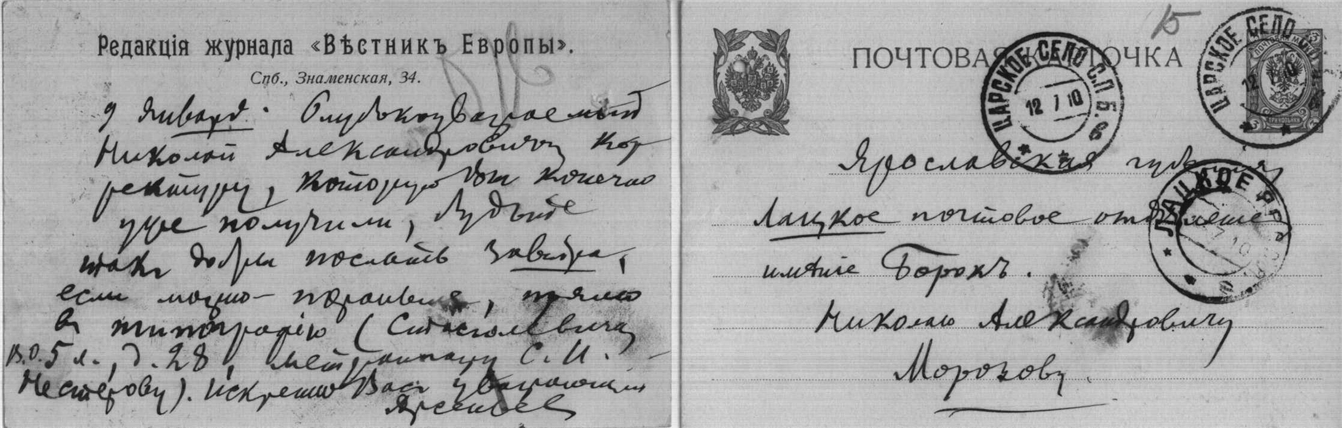 Редакція журнала «Вѣстникъ Европы».
Спб., Знаменская, 34.
9 Января. Глубокоуважаемый
Николай Александровичъ, кор-
ректуру, которую Вы конечно
уже получили, будьте
такъ добры послать завтра,
если можно - пораньше, прямо
въ типографію (Стасюлевича,
В.О. 5 л., д. 28, метранпажу С. И.
Нестерову). Искренно Васъ уважающій
Арсеньевъ
15
ПОЧТОВАЯ КАРТОЧКА
ЦАРСКОЕ СЕЛО С.П.Б.
12 7 10
ЦАРСКОЕ СЕЛО
12 10
Ярославская губернія
Лацкое почтовое отдѣленіе
имѣніе Борокъ.
Николаю Александровичу
Морозову.
ЛАЦКОЕ
7 10